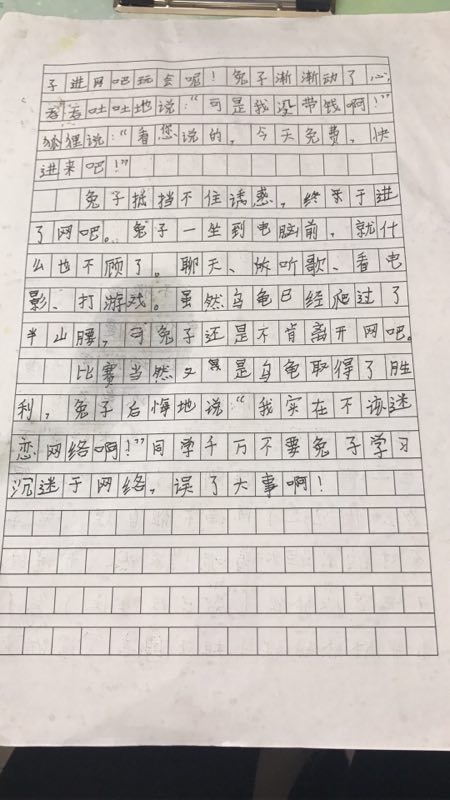 子进网吧玩会呢！兔子渐渐动了心
吞吞吐吐地说：“可是我没带钱啊！”
狐狸说：“看您说的，今天免费，快
进来吧！”
兔子抵挡不住诱惑，终于进
了网吧。兔子一坐到电脑前，就什
么也不顾了。聊天、听歌、看电
影、打游戏。虽然乌龟已经爬过了
半山腰，可兔子还是不肯离开网吧。
比赛当然又是乌龟取得了胜
利，兔子后悔地说“我实在不该迷
恋网络啊！”同学千万不要兔子学习
沉迷于网络，误了大事啊！